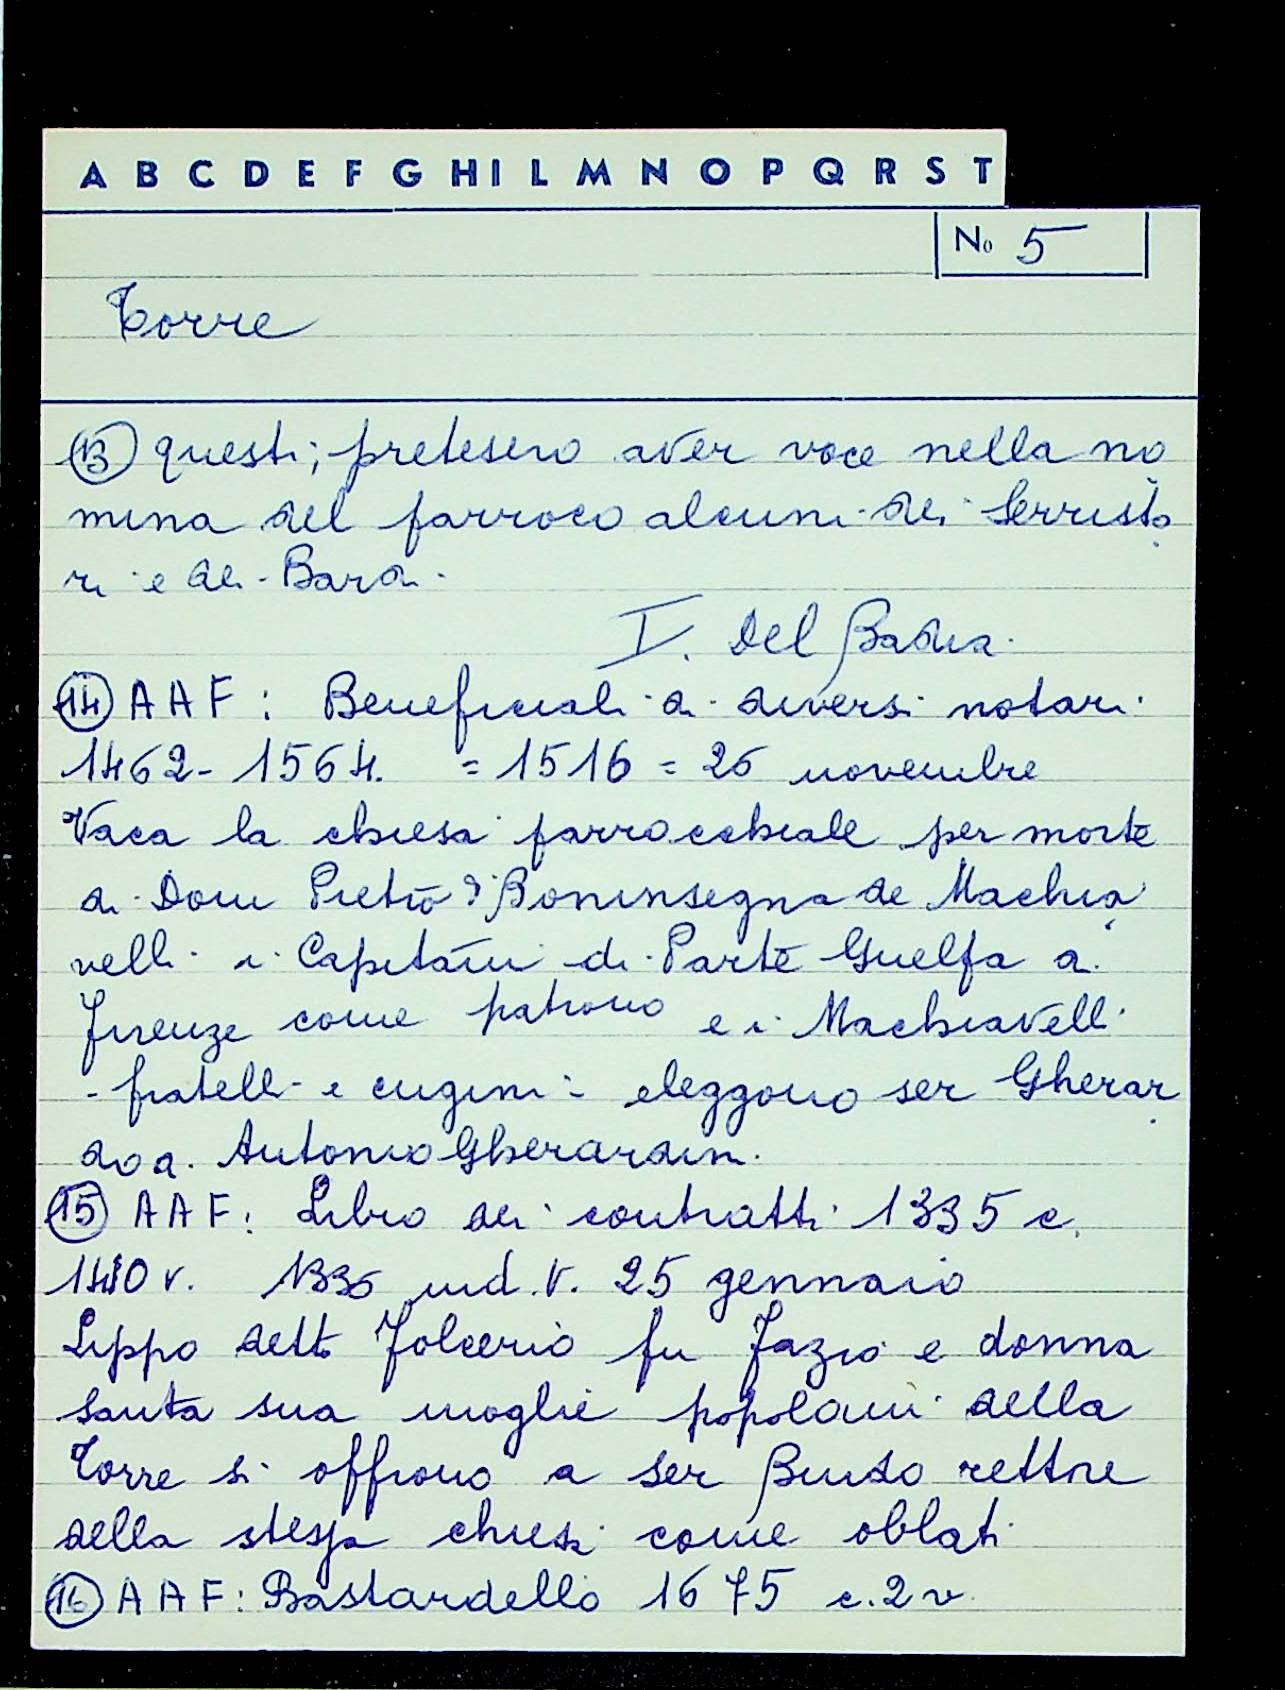 A B C D E F G H I L M N O P Q R S T
No 5
Torre
13 questi; pretesero aver voce nella no
mina del parroco alcuni dei Serristo
ri e dei Bardi.
I. Del Badia.
14 AAF: Beneficiali di diversi notari
1462-1564. =1516= 26 novembre
Vaca la chiesa parrocchiale per morte
di Dom Pietro di Boninsegna de Machia
velli. i Capitani di Parte Guelfa di
Firenze come patrono e i Machiavelli
- fratelli e cugini - eleggono ser Gherar
do di Antonio Gherardini.
15 AAF: Libro dei contratti 1335 c.
140 v. 1336 ind. V. 25 gennaio
Lippo detto Folcerio fu Fazio e donna
Santa sua moglie popolani della
Torre si offrono a ser Bindo rettore
della stessa chiesa come oblati
16 AAF: Bastardello 1675 c. 2 v.